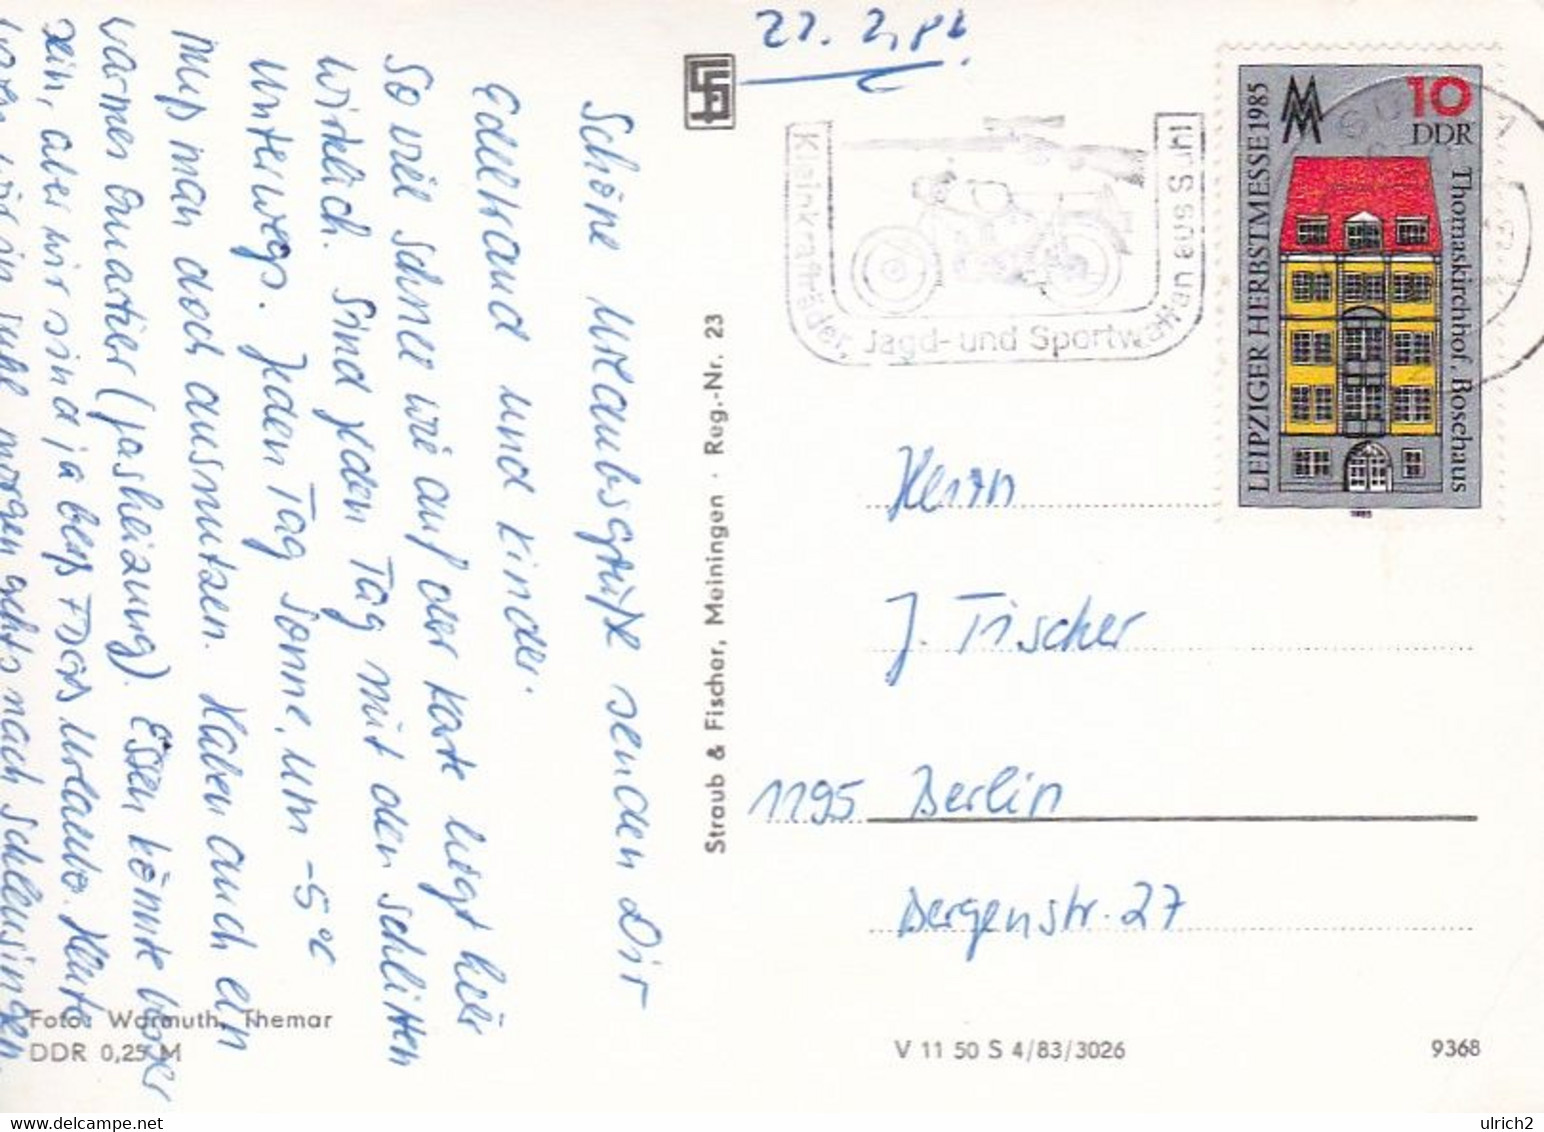 22.2.86
Schöne Urlaubsgrüße senden Dir
Edeltraud und Kinder.
So viel Schnee wie auf der Karte liegt hier
wirklich. Sind jeden Tag mit den Schlitten
unterwegs. Jeden Tag Sonne, um -5°C
Muß man doch ausnutzen. Haben auch ein
warmes Quartier (Gasheizung). Essen könnte besser
sein, aber wir sind ja beim FDGB Urlaub. Heute
waren wir in Suhl morgen gehts nach Schleusingen.
Foto: Warmuth, Themar
DDR 0,25 M
Straub & Fischer, Meiningen · Reg.-Nr. 23
Kleinkrafträder, Jagd- und Sportwaffen aus Suhl
SUHL
LEIPZIGER HERBSTMESSE 1985
MM
10
DDR
Thomaskirchhof, Boschaus
1985
Herrn
J. Fischer
1195 Berlin
Bergenstr. 27
V 11 50 S 4/83/3026
9368
ulrich2